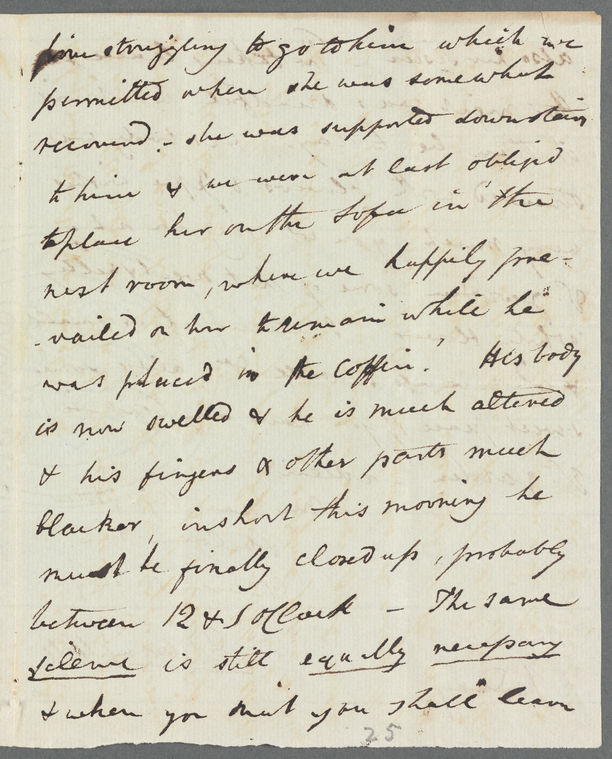 time struggling to go to him which we
permitted when she was somewhat
recovered. - she was supported downstairs
to him & we were at last obliged
to place her on the Sofa in the
next room, where we happily pre-
-vailed on her to remain while he
was placed in the Coffin! His body
is now swelled & he is much altered
& his fingers & other parts much
blacker, in short this morning he
must be finally closed up, probably
between 12 & 1 o'Clock - The same
silence is still equally necessary
& when you visit you shall learn
25